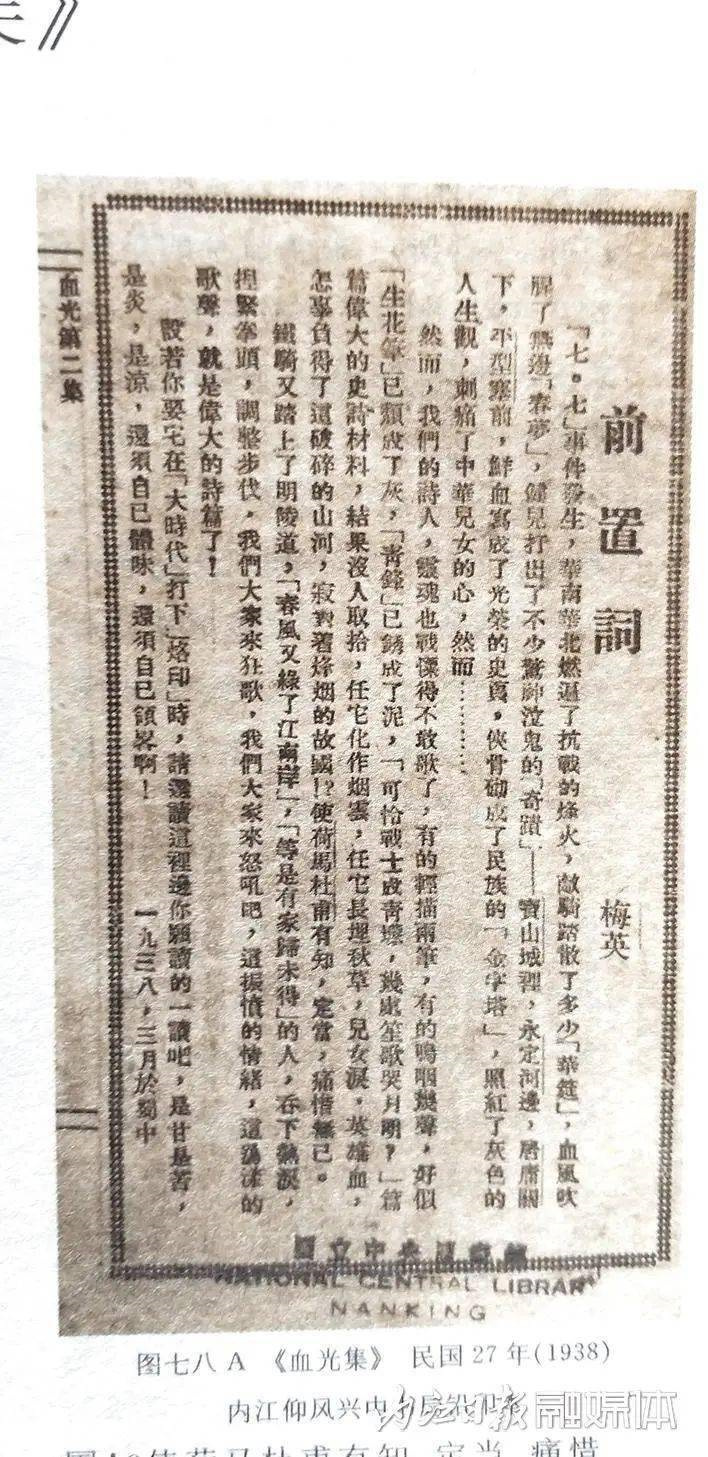 》
前置詞
梅英
「七·七」事件發生，華南華北燃遍了抗戰的烽火，敵騎踏散了多少「華筵」，血風吹
醒了燕邊「春夢」，健兒打出了不少驚神泣鬼的「奇蹟」——寶山城裡，永定河邊，居庸關
下，平型塞前，鮮血寫成了光榮的史頁，俠骨砌成了民族的「金字塔」，照紅了灰色的
人生觀，刺痛了中華兒女的心，然而…………
然而，我們的詩人，靈魂也戰慄得不敢歌了，有的輕描兩筆，有的嗚咽幾聲，好似
「生花筆」已類成了灰，「青鋒」已銹成了泥，「可怜戰士成青壚，幾處笙歌哭月明？」篇
篇偉大的史詩材料，結果沒人取拾，任它化作烟雲，任它長埋秋草，兒女淚，英雄血，
怎辜負得了這破碎的山河，寂對着烽烟的故國！？使荷馬杜甫有知，定當，痛惜無已。
鐵騎又踏上了明陵道，「春風又綠了江南岸」，「等是有家歸未得」的人，吞下熱淚，
捏緊拳頭，調整步伐，我們大家來狂歌，我們大家來怒吼吧，這振憤的情緒，這流沫的
歌聲，就是偉大的詩篇了！
設若你要它在「大時代」打下「烙印」時，請選讀這裡邊你願讀的一讀吧，是甘是苦，
是炎，是涼，還須自已體味，還須自已領畧啊！
一九三八，三月於蜀中
血光第二集
國立中央圖書館
NATIONAL CENTRAL LIBRARY
NANKING
图七八 A 《血光集》 民国 27 年(1938)
内江仰风兴内书局
内江日报融媒体
使荷马杜甫有知 定当 痛惜